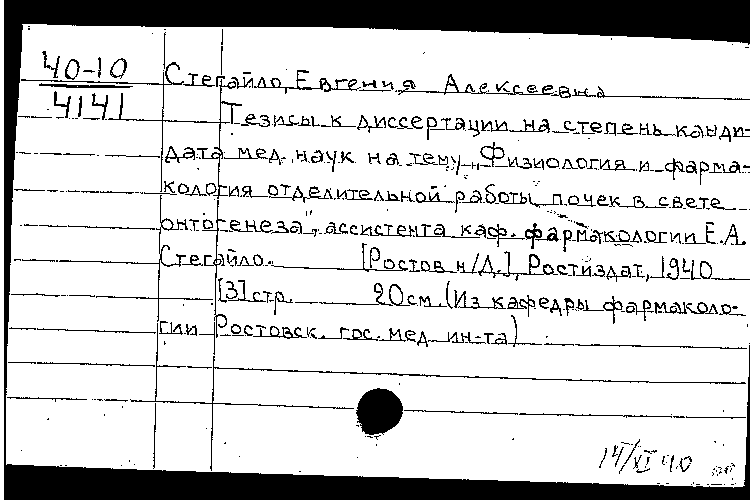 40-10
4141
Стегайло, Евгения Алексеевна
Тезисы к диссертации на степень канди-
дата мед. наук на тему „Физиология и фарма-
кология отделительной работы почек в свете
онтогенеза", ассистента каф. фармакологии Е.А.
Стегайло. [Ростов н/Д.], Ростиздат, 1940
[3] стр. 20 см. (Из кафедры фармаколо-
гии Ростовск. гос. мед. ин-та)
14/XI 40